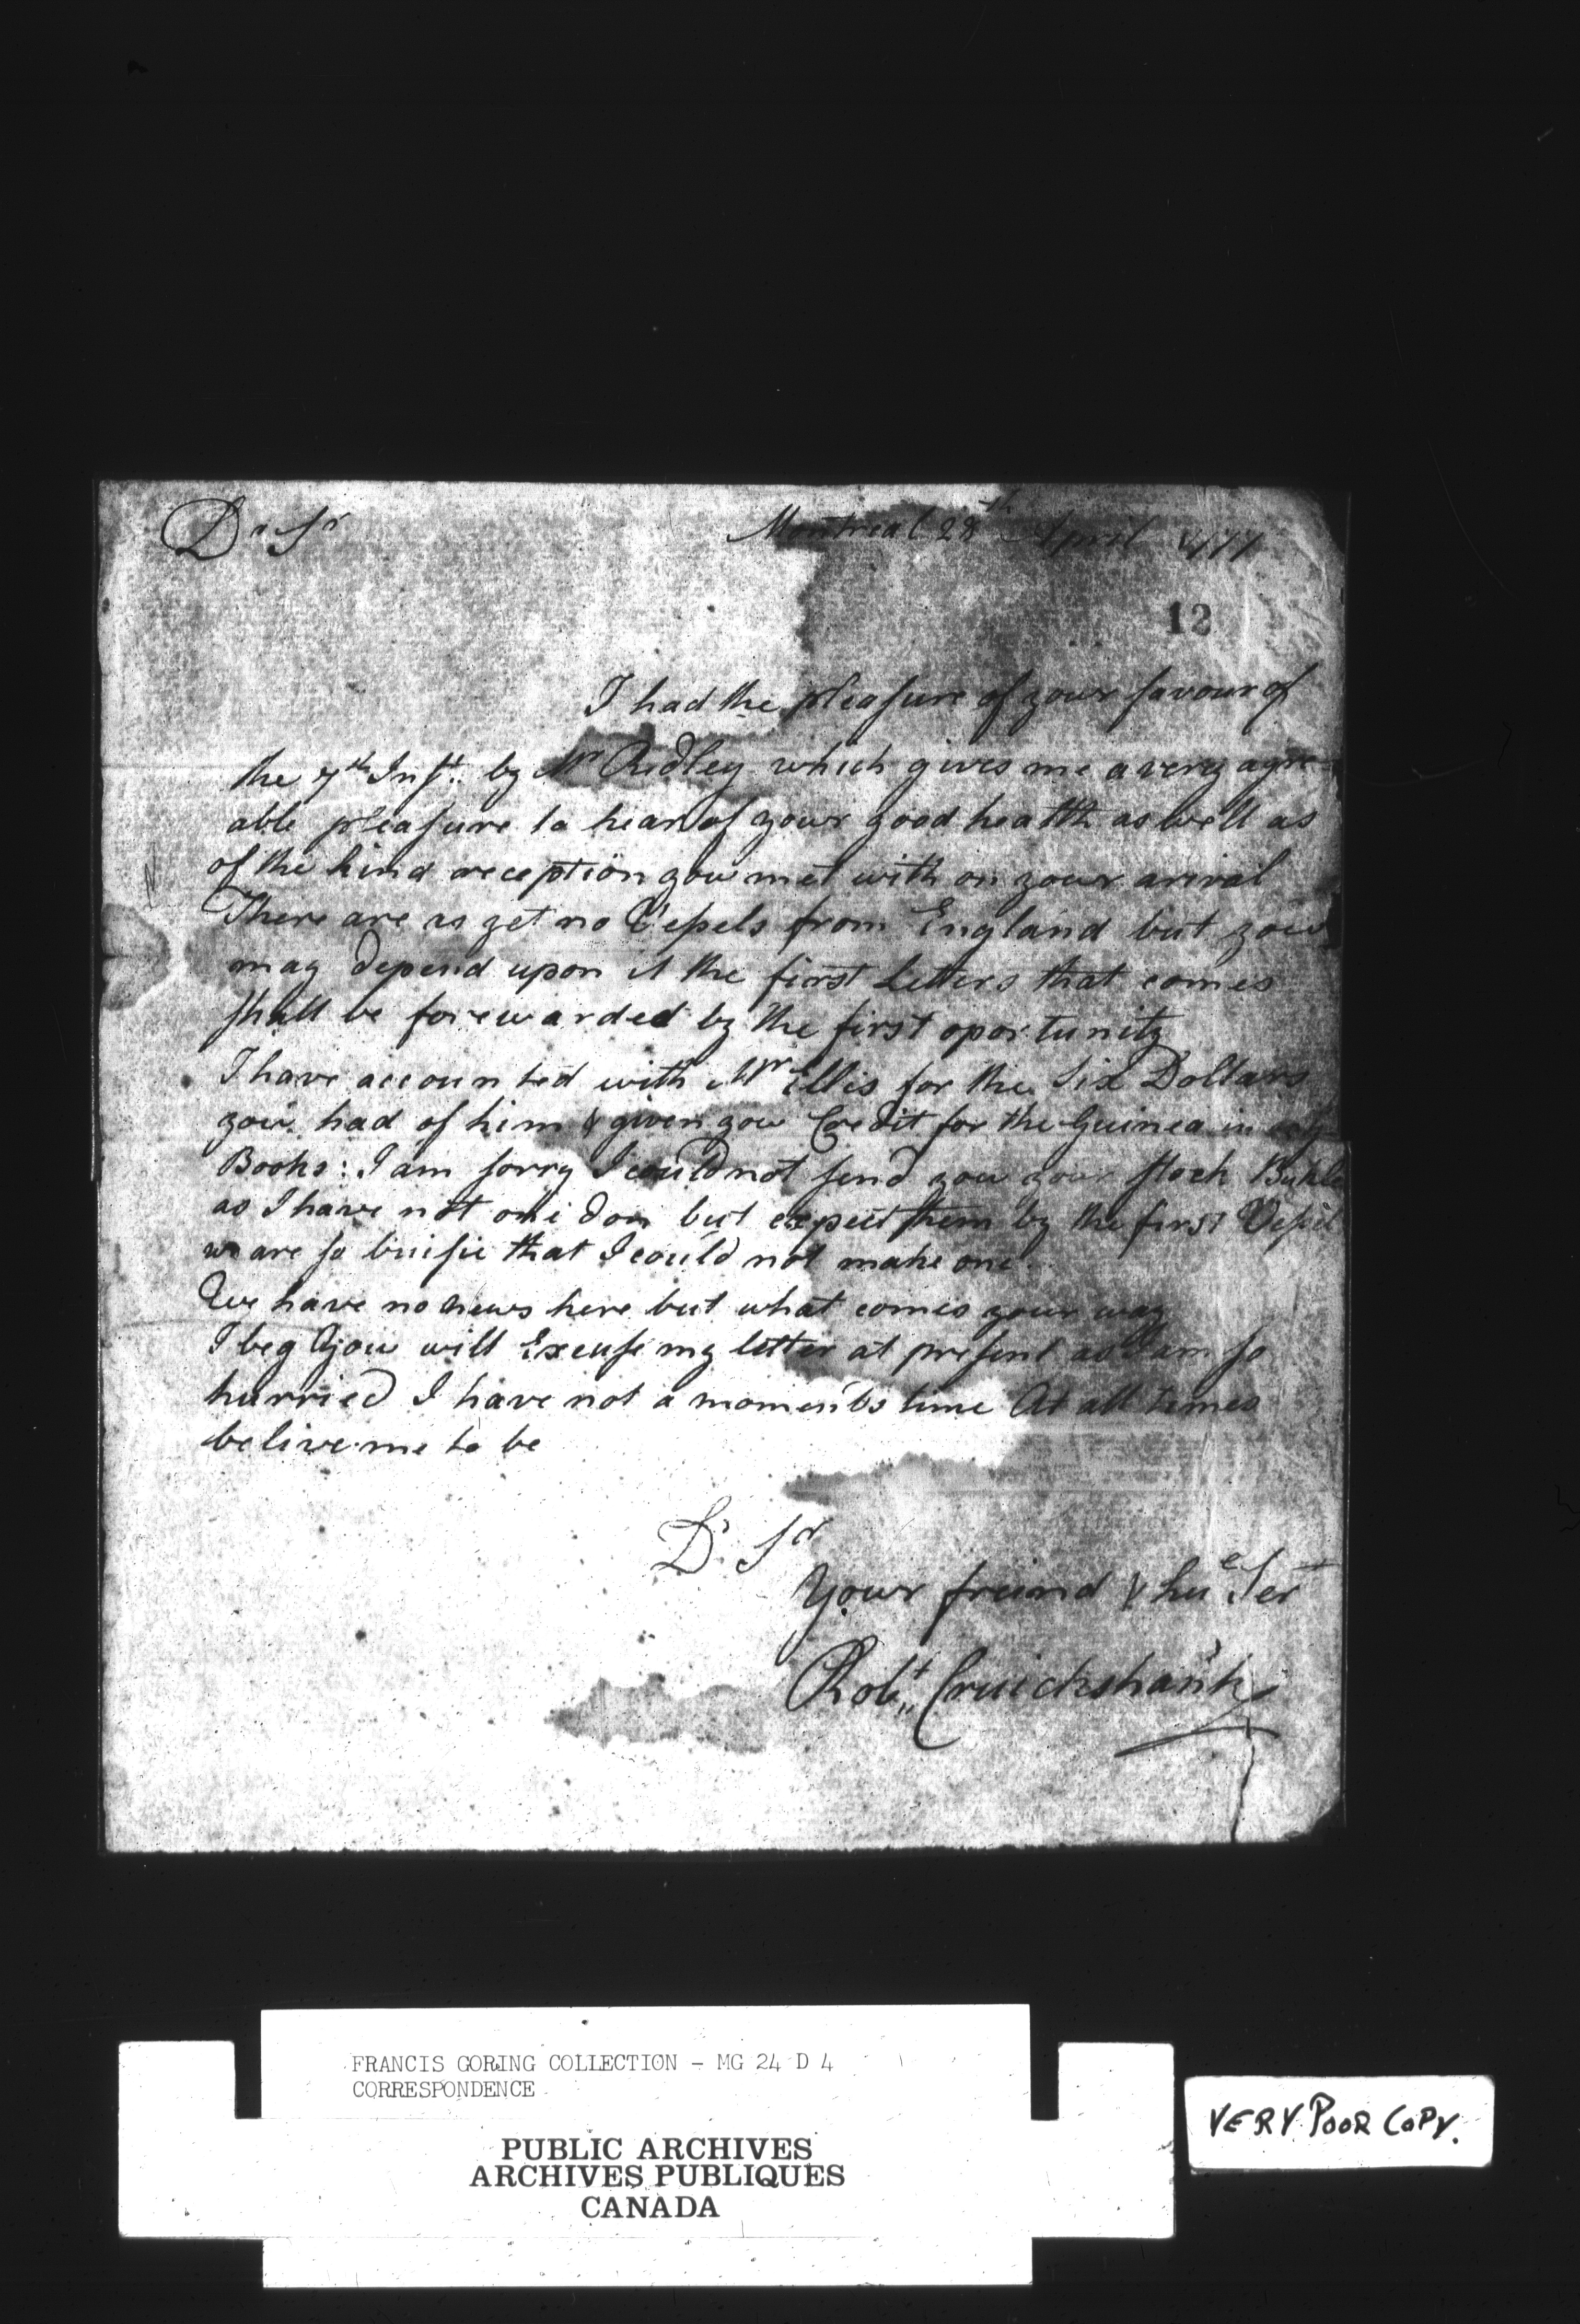 Dr Sr Montreal 28th April 1777
12
I had the pleasure of your favour of
the 7th Inst. by Mr Ridley which gives me a very agre
able pleasure to hear of your good health as well as
of the kind reception you met with on your arival
There are as yet no Vessels from England but you
may depend upon it the first Letters that comes
shall be forewarded by the first oportunity
I have accounted with Mr Ellis for the Six Dollars
you had of him & given you Credit for the Guinea in my
Books: I am sorry I could not send you your stock Bukle
as I have not one don but expect them by the first Vessel
we are so buisie that I could not make one.
We have no news here but what comes your way
I beg you will Excuse my letter at present as I am so
hurried I have not a moments time At all times
belive me to be
Dr Sr
Your freind & hue Sert
Robt Cruickshank
FRANCIS GORING COLLECTION - MG 24 D 4
CORRESPONDENCE
PUBLIC ARCHIVES
ARCHIVES PUBLIQUES
CANADA
VERY POOR COPY.